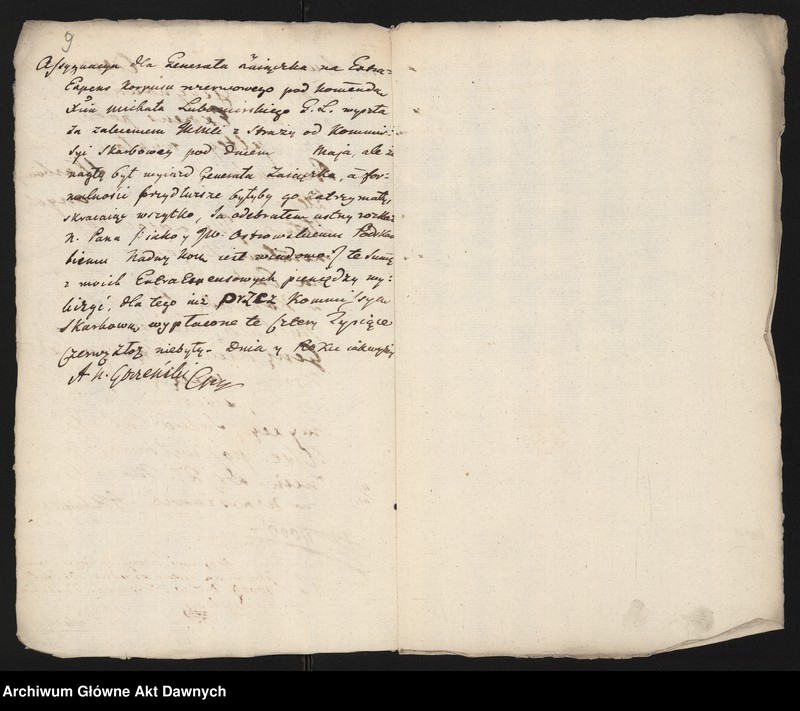 9
Assygnacya dla Generała Zaiączka na Extra-
Expens Korpusu rezerwowego pod Komendą
Xcia Michała Lubomirskiego G. L. wyszła
za zaleceniem z Straży od Kommis:
syi Skarbowey pod Dniem Maja, ale iż
nagły był wyiazd Generała Zaiączka, a for-
malności przydłuższe byłyby go zatrzymały,
skracaiąc wszytko, Ja odebrałem ustny rozkaz
N. Pana /: iako y JW. Ostrowskiemu Podskar
biemu Nadwy Kor. iest wiadomo :/ te Summę
z moich ExtraExpensowych pieniędzy wy-
liczyć, dla tego iuż przez Kommissyą
Skarbową wypłacone te Cztery Tysiące
Czerwo Złot niebyły. Dnia y Roku iak wyżey
A h. Gorzeński
Archiwum Główne Akt Dawnych